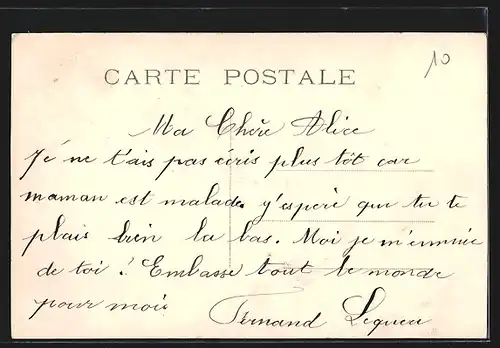 10
CARTE POSTALE
Ma Chère Alice
Je ne t'ais pas écris plus tôt car
maman est malade. y'espère que tu te
plais bien la bas. Moi je m'ennuie
de toi ! Embasse tout le monde
pour mois Fernand Lequeu